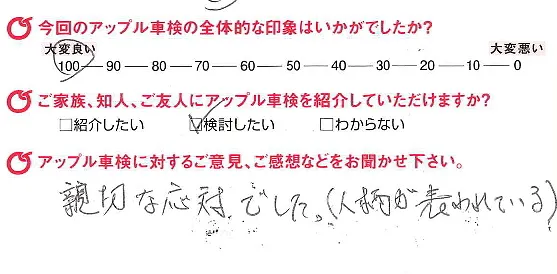 今回のアップル車検の全体的な印象はいかがでしたか?
大変良い 大変悪い
100 — 90 — 80 — 70 — 60 — 50 — 40 — 30 — 20 — 10 — 0
ご家族、知人、ご友人にアップル車検を紹介していただけますか?
□紹介したい ☑検討したい □わからない
アップル車検に対するご意見、ご感想などをお聞かせ下さい。
親切な応対でした。(人柄が表われている)